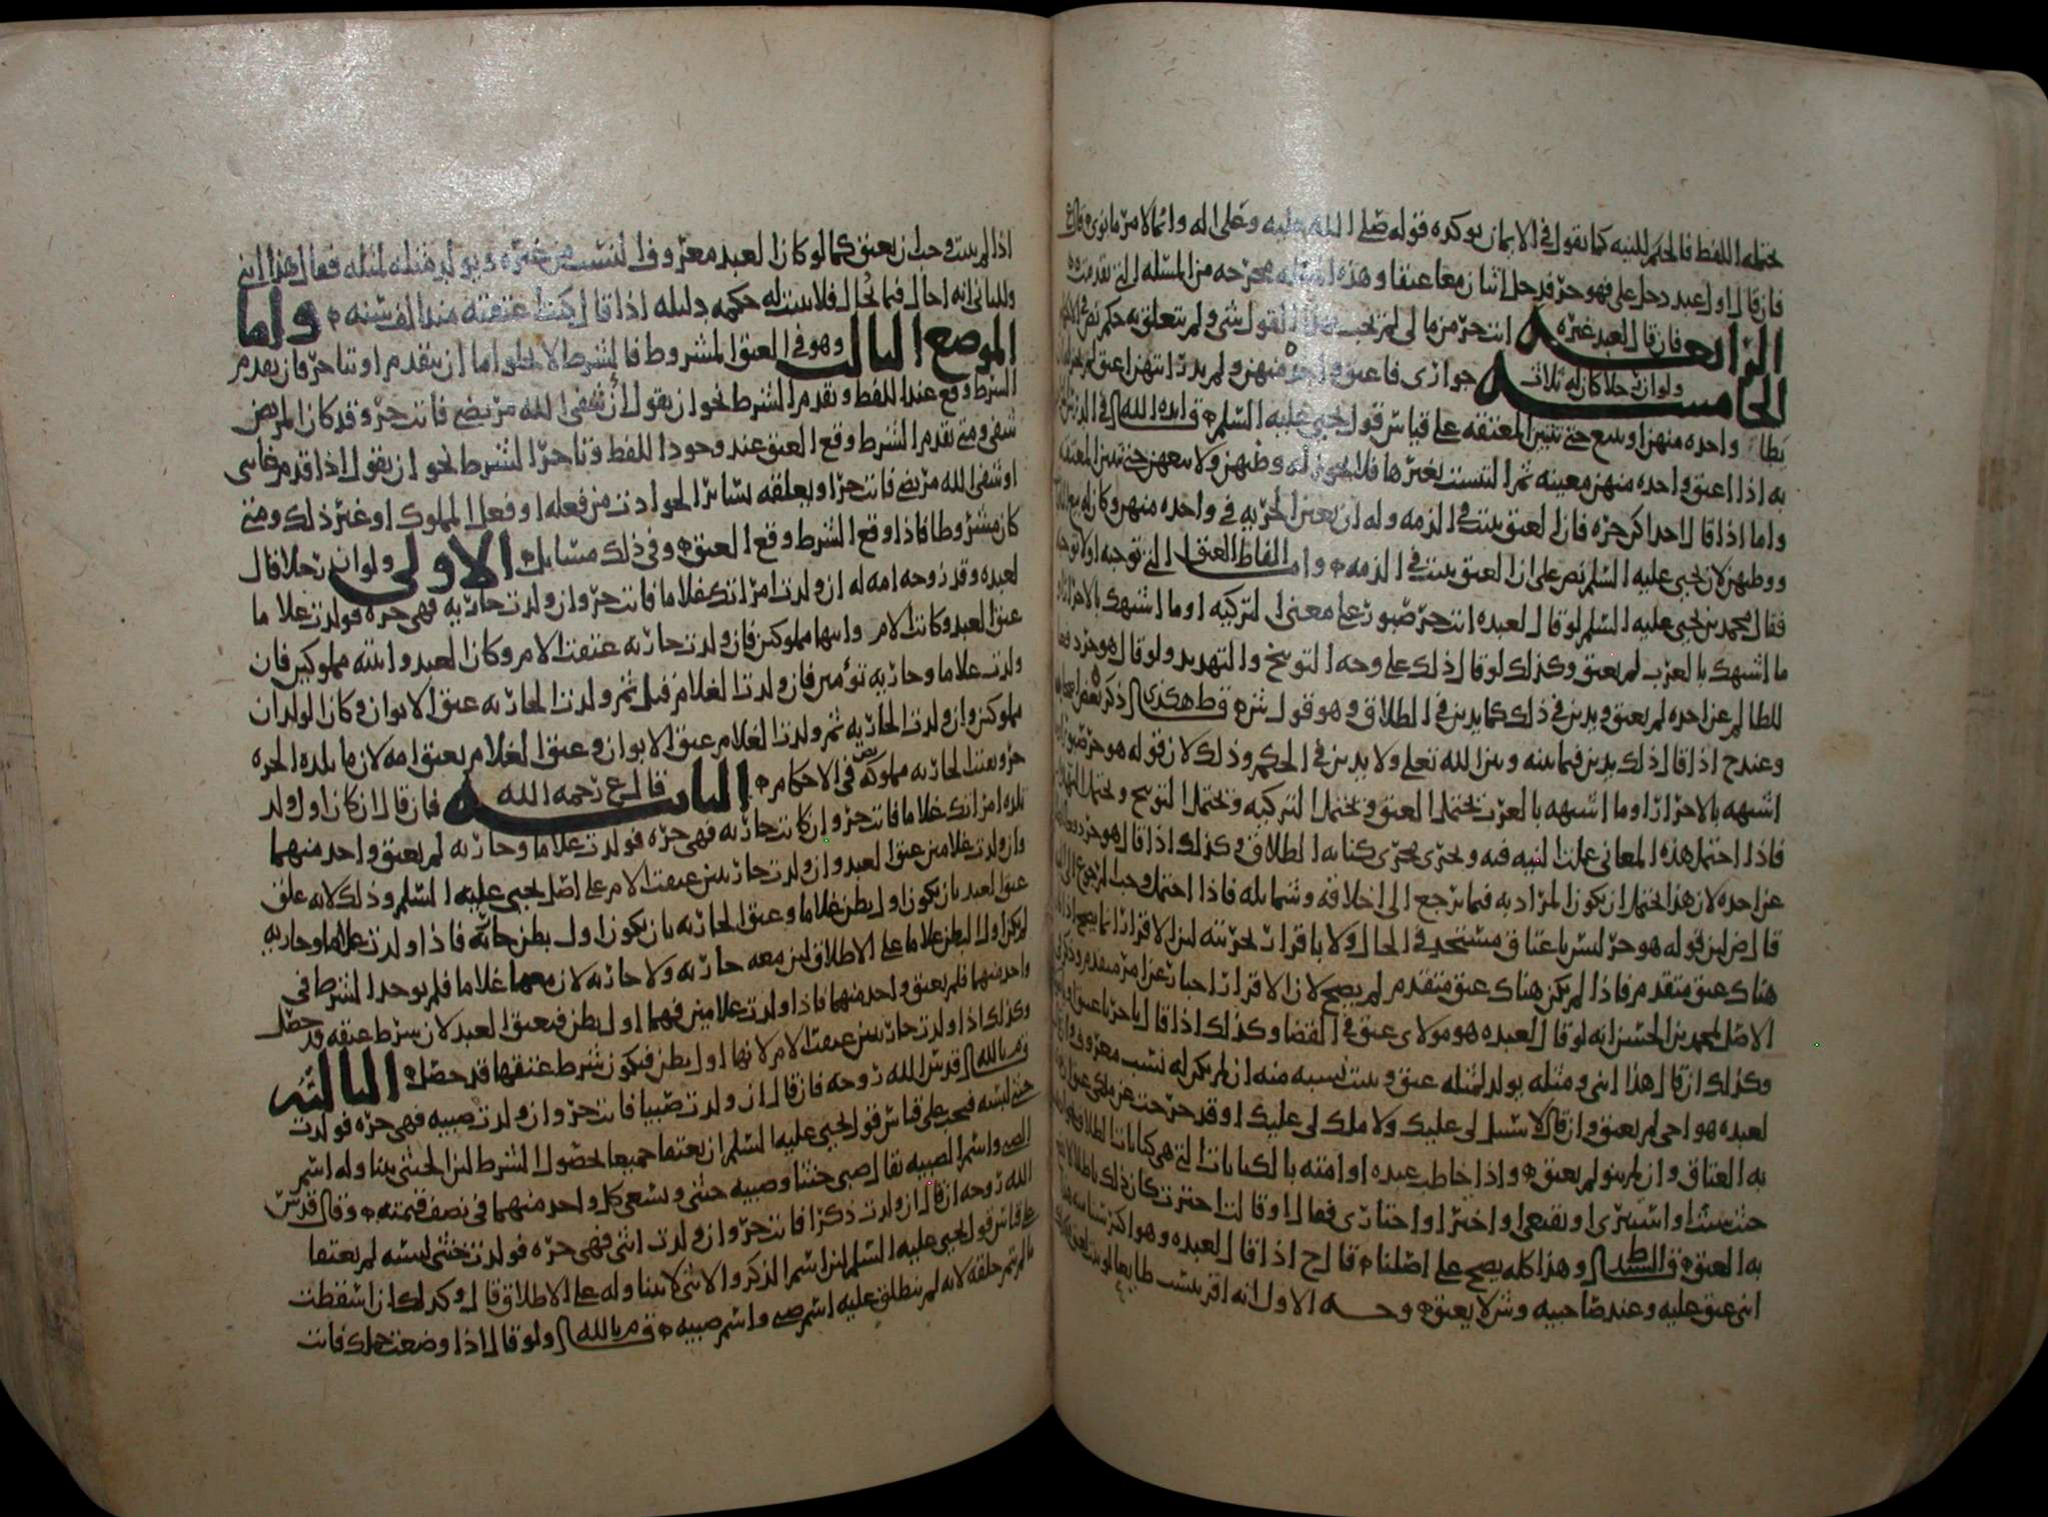 يحتمله اللفظ فالحكم للنيه كما نقول في الايمان يوكده قوله صلى الله عليه وعلى اله وانما لامرء ما نوى
فان قال اول عبد دخل علي فهو حر فدخل اثنان معا عتقا وهذه المسله مخرجه من المسله التي تقدمت
الرابعه فان قال لعبد غيره انت حر من مالي لم يجب بهذا القول شي ولم يتعلق به حكم
الخامسه ولو ان رجلا كان له ثلاث جواري فاعتق واحده منهن ولم يدر ايتهن اعتق
يطا واحده منهن او يبيع حتى تتبين المعتقه على قياس قول يحيى عليه السلم
به اذا اعتق واحده منهن معينه ثم التبست بغيرها فلا يجوز له وطيهن ولا بيعهن حتى تتبين المعتقه
واما اذا قال احداكن حره فان العتق يثبت في الذمه وله ان يعين الحريه في واحده منهن وكان له بيع
ووطيهن لان يحيى عليه السلم نص على ان العتق يثبت في الذمه واما الفاظ العتق التي توجبه اولا توجبه
فقال محمد بن يحيى عليه السلم لو قال لعبده انت حر صبور على معنى التزكيه او ما اشبهك بالاحرار او
ما اشبهك بالعرب لم يعتق وكذلك لو قال ذلك على وجه التوبيخ والتهديد ولو قال هو حر دفعا
للظالم عن اخذه لم يعتق ويدين في ذلك كما يدين في الطلاق وهو قول ش هكذى ذكر بعض
وعند ح اذا قال ذلك يدين فيما بينه وبين الله تعلى ولا يدين في الحكم وذلك لان قوله هو حر صبور
اشبهه بالاحرار او ما اشبهه بالعرب يحتمل العتق ويحتمل التزكيه ويحتمل التوبيخ ويحتمل التهديد
فاذا احتمل هذه المعاني عملت النيه فيه ويجري مجرى كنايه الطلاق وكذلك اذا قال هو حر دفعا
عن اخذه لان هذا يحتمل ان يكون المراد به فيما يرجع الى اخلاقه وشمايله فاذا احتمل وجب الرجوع الى
قال ض ليس قوله هو حر ليس باعتاق مستحد في الحال ولا باقرار بحريته لان الاقرار انما يصح اذا
هناك عتق متقدم فاذا لم يكن هناك عتق متقدم لم يصح لان الاقرار اخبار عن امر متقدم وذكر في
الاصل لمحمد بن الحسن انه لو قال لعبده هو مولاي عتق في القضا وكذلك اذا قال يا حر يا عتيق
وكذلك ان قال هذا ابني ومثله يولد لمثله عتق ويثبت نسبه منه ان لم يكن له نسب معروف وان
لعبده هو اخي لم يعتق وان قال لا سبيل لي عليك ولا ملك لي عليك او قد خرجت عن ملكي
به العتاق وان لم ينو لم يعتق واذا خاطب عبده او امته بالكنايات التي هي كنايات الطلاق
حيث شيت او استتري او تقنعي او اختر او اختاري فقال او قالت اخترت كان ذلك باطلا
به العتق وهذا كله يصح على اصلنا قال ح اذا قال لعبده وهو اكبر سنا منه هذا
ابني عتق عليه وعند صاحبيه وش لا يعتق وجه الاول انه اقر بنسب
اذا لم يثبت وجب ان يعتق كما لو كان العبد معروف النسب من غيره ويولد مثله لمثله فقال هذا ابني
وللثاني انه احال فيما قال فلا يثبت له حكمه دليله اذا قال كنت اعتقته منذ الف سنه واما
الموضع الثالث وهو في العتق المشروط فالشرط لا يخلو اما ان يتقدم او يتاخر فان تقدم
الشرط وقع عند اللفظ وتقدم الشرط نحو ان يقول ان شفى الله مريضي فانت حر وقد كان المريض
شفي ومتى تقدم الشرط وقع العتق عند وجود اللفظ وتاخر الشرط نحو ان يقول اذا قدم غايبي
او شفى الله مريضي فانت حر او يعلقه بساير الحوادث من فعله او فعل المملوك او غير ذلك ومتى
كان مشروطا فاذا وقع الشرط وقع العتق وفي ذلك مسايل الاولى ولو ان رجلا قال
لعبده وقد زوجه امه له ان ولدت امراتك غلاما فانت حر وان ولدت جاريه فهي حره فولدت غلاما
عتق العبد وكانت الام وابنها مملوكين فان ولدت جاريه عتقت الام وكان العبد وابنته مملوكين فان
ولدت غلاما وجاريه توءمين فان ولدت الغلام قبل ثم ولدت الجاريه عتق الابوان وكان الولدان
مملوكين وان ولدت الجاريه ثم ولدت الغلام عتق الابوان وعتق الغلام بعتق امه لان ما تلده الحره
حر وبقيت الجاريه مملوكه نص في الاحكام الثانيه قال ع رحمه الله فان قال ان كان اول ولد
تلده امراتك غلاما فانت حر وان كانت جاريه فهي حره فولدت غلاما وجاريه لم يعتق واحد منهما
وان ولدت غلامين عتق العبد وان ولدت جاريتين عتقت الام على اصل يحيى عليه السلم وذلك لانه علق
عتق العبد بان يكون اول بطن غلاما وعتق الجاريه بان يكون اول بطن جاريه فاذا ولدت غلاما وجاريه
لم يكن اول البطن غلاما على الاطلاق ليس معه جاريه ولا جاريه لان معهما غلاما فلم يوجد الشرط في
واحد منهما فلم يعتق واحد منهما فاذا ولدت غلامين فهما اول بطن فيعتق العبد لان شرط عتقه قد حصل
وكذلك اذا ولدت جاريتين عتقت الام لانها اول بطن فيكون شرط عتقها قد حصل الثالثه
قدس الله روحه فان قال ان ولدت صبيا فانت حر وان ولدت صبيه فهي حره فولدت
خنثى لبسه فيجب على قياس قول يحيى عليه السلم ان يعتقا جميعا لحصول الشرط لان الخنثى يتناوله اسم
الصبي واسم الصبيه يقال صبي خنثى وصبيه خنثى ويسعى كل واحد منهما في نصف قيمته وقال قدس
الله روحه ان قال ان ولدت ذكرا فانت حر وان ولدت انثى فهي حره فولدت خنثى لبسه لم يعتقا
على قياس قول يحيى عليه السلم لان اسم الذكر والانثى لا يتناوله على الاطلاق قال وكذلك ان اسقطت
ما لم يتم خلقه لانه لم ينطلق عليه اسم صبي واسم صبيه ولو قال اذا وضعت حملك فانت